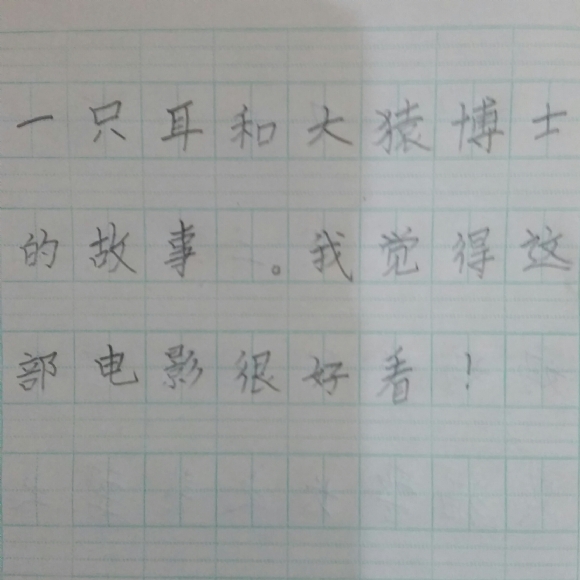 一只耳和大猿博士
的故事。我觉得这
部电影很好看！